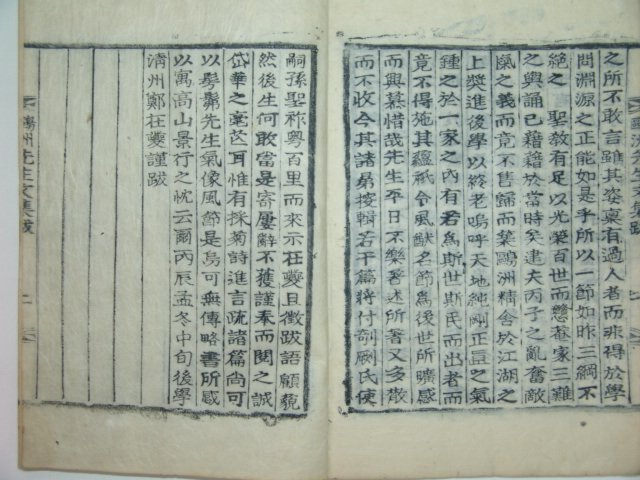 之所不敢言雖其姿稟有過人者而非得於學
問淵源之正能如是乎所以一節如昨三綱不
絶之 聖敎有足以光榮百世而戀菴家三難
之輿誦已藉藉於當時矣逮夫丙子之亂奮敵
愾之義而竟不售歸而築鷗洲精舍於江湖之
上奬進後學以終老嗚呼天地純剛正直之氣
鍾之於一家之內有若爲斯世斯民而出者而
竟不得施其蘊秖令風猷名節爲後世所曠感
而興慕惜哉先生平日不樂著述所著又多散
而不收今其諸昴按輯若干篇將付剞劂氏使
嗣孫聖祚粤百里而來示在夔且徵跋語顧藐
然後生何敢當是寄屢辭不獲謹奉而閱之誠
岱華之毫芒耳惟有採菊詩進言疏諸篇尙可
以髣髴先生氣像風節是烏可無傳略書所感
以寓高山景行之忱云爾丙辰孟冬中旬後學
淸州鄭在夔謹跋
鷗洲先生文集跋 二